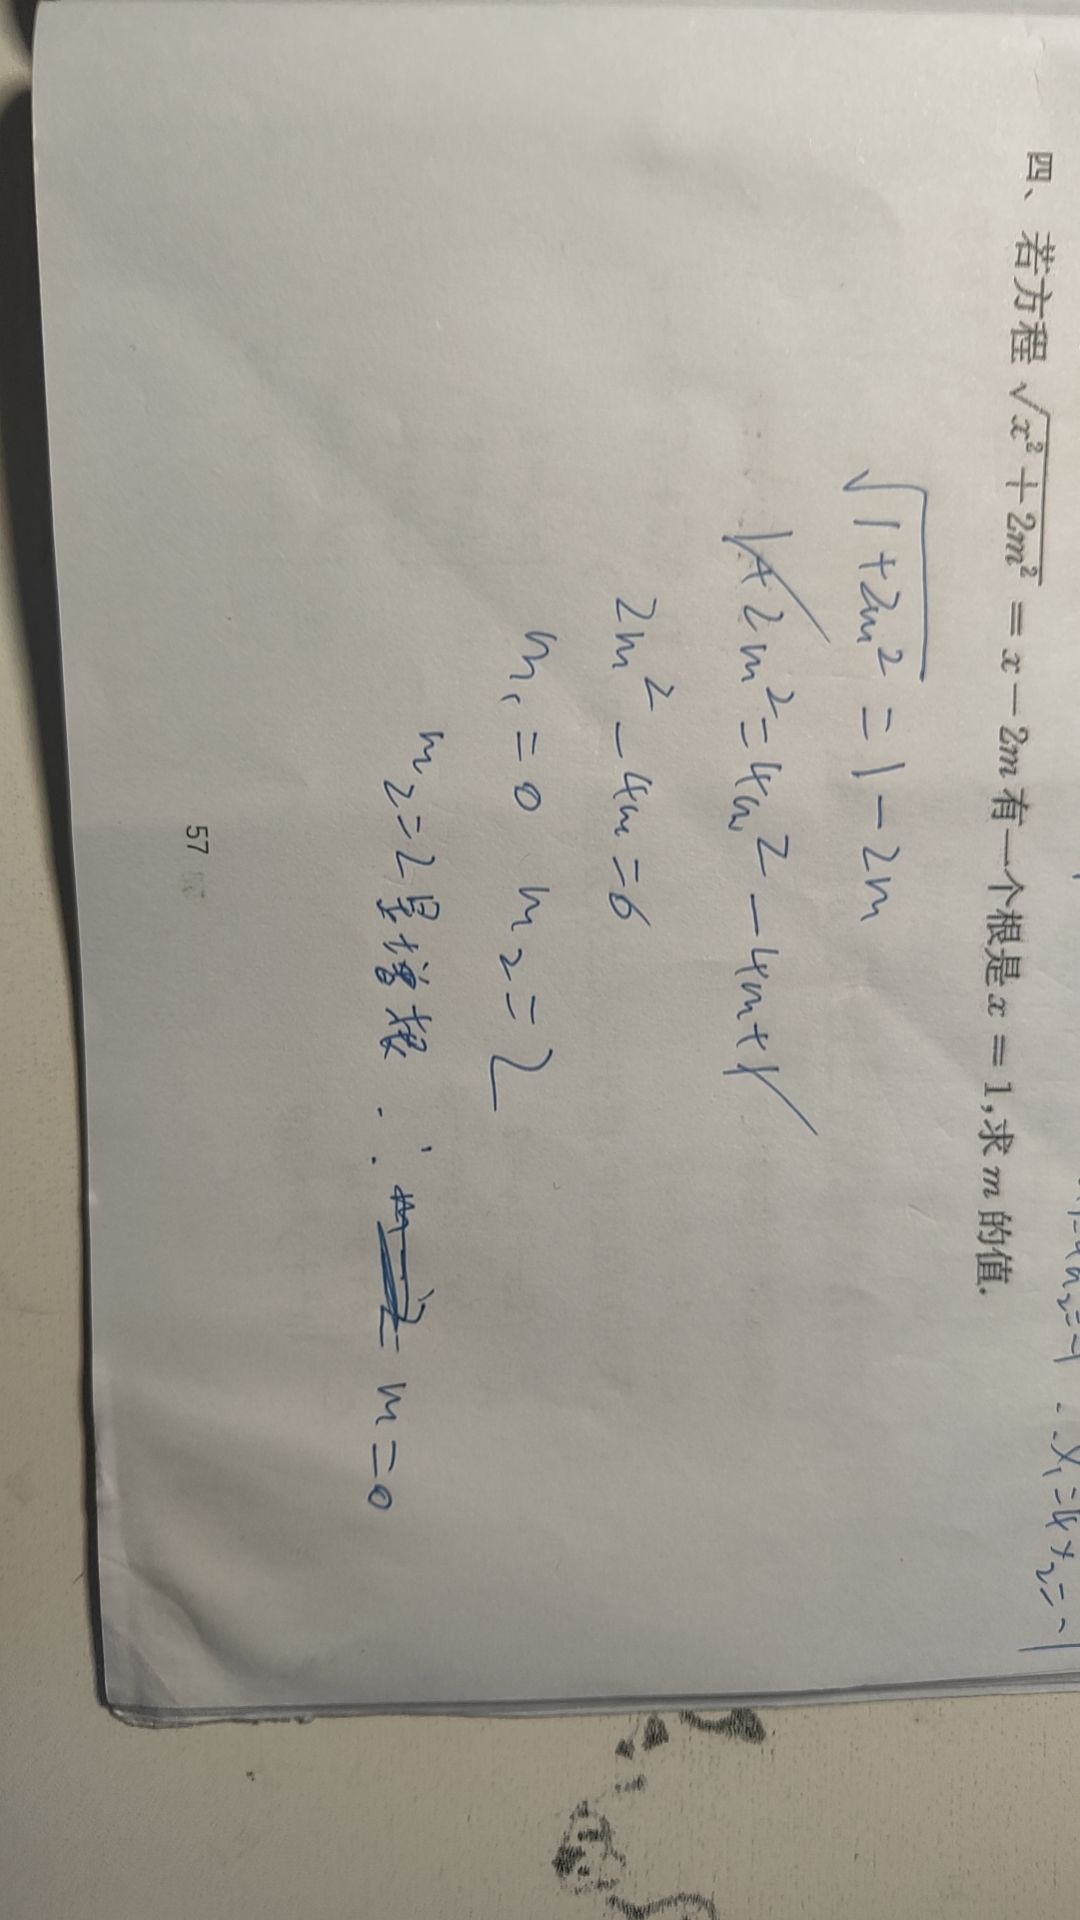 x₁=4 x₂=-1
四、若方程 √(x²+2m²) = x-2m 有一个根是 x=1,求 m 的值.
√(1+2m²) = 1-2m
1+2m²=4m²-4m+1
2m²-4m=0
m₁=0 m₂=2
m₂=2是增根 ∴ m=0
57